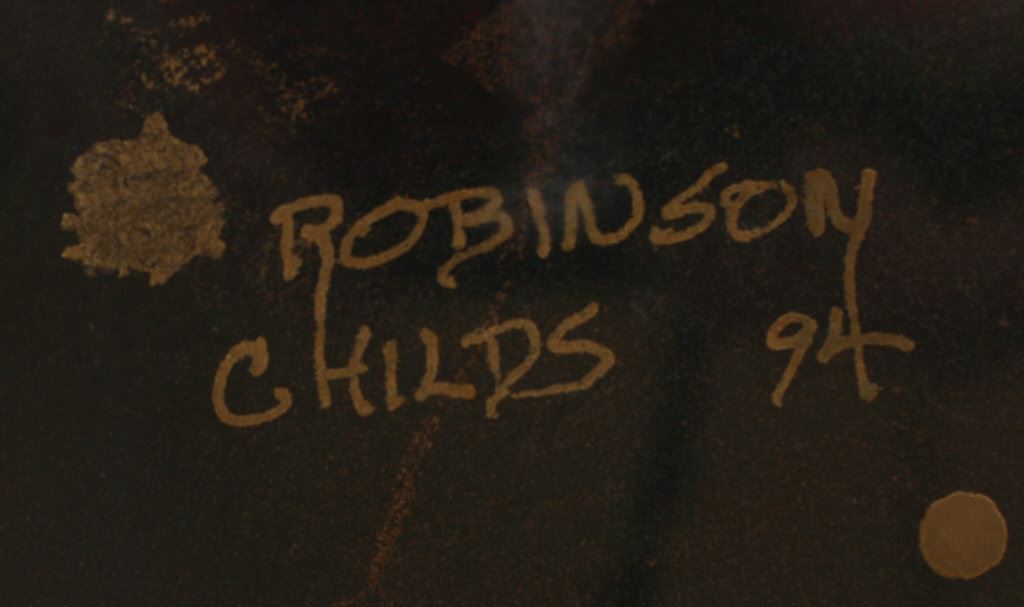 ROBINSON
CHILDS 94